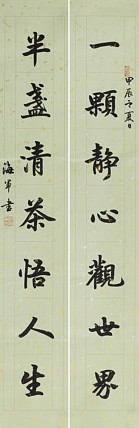 一顆靜心觀世界
甲辰年夏日
半盞清茶悟人生
海軍書